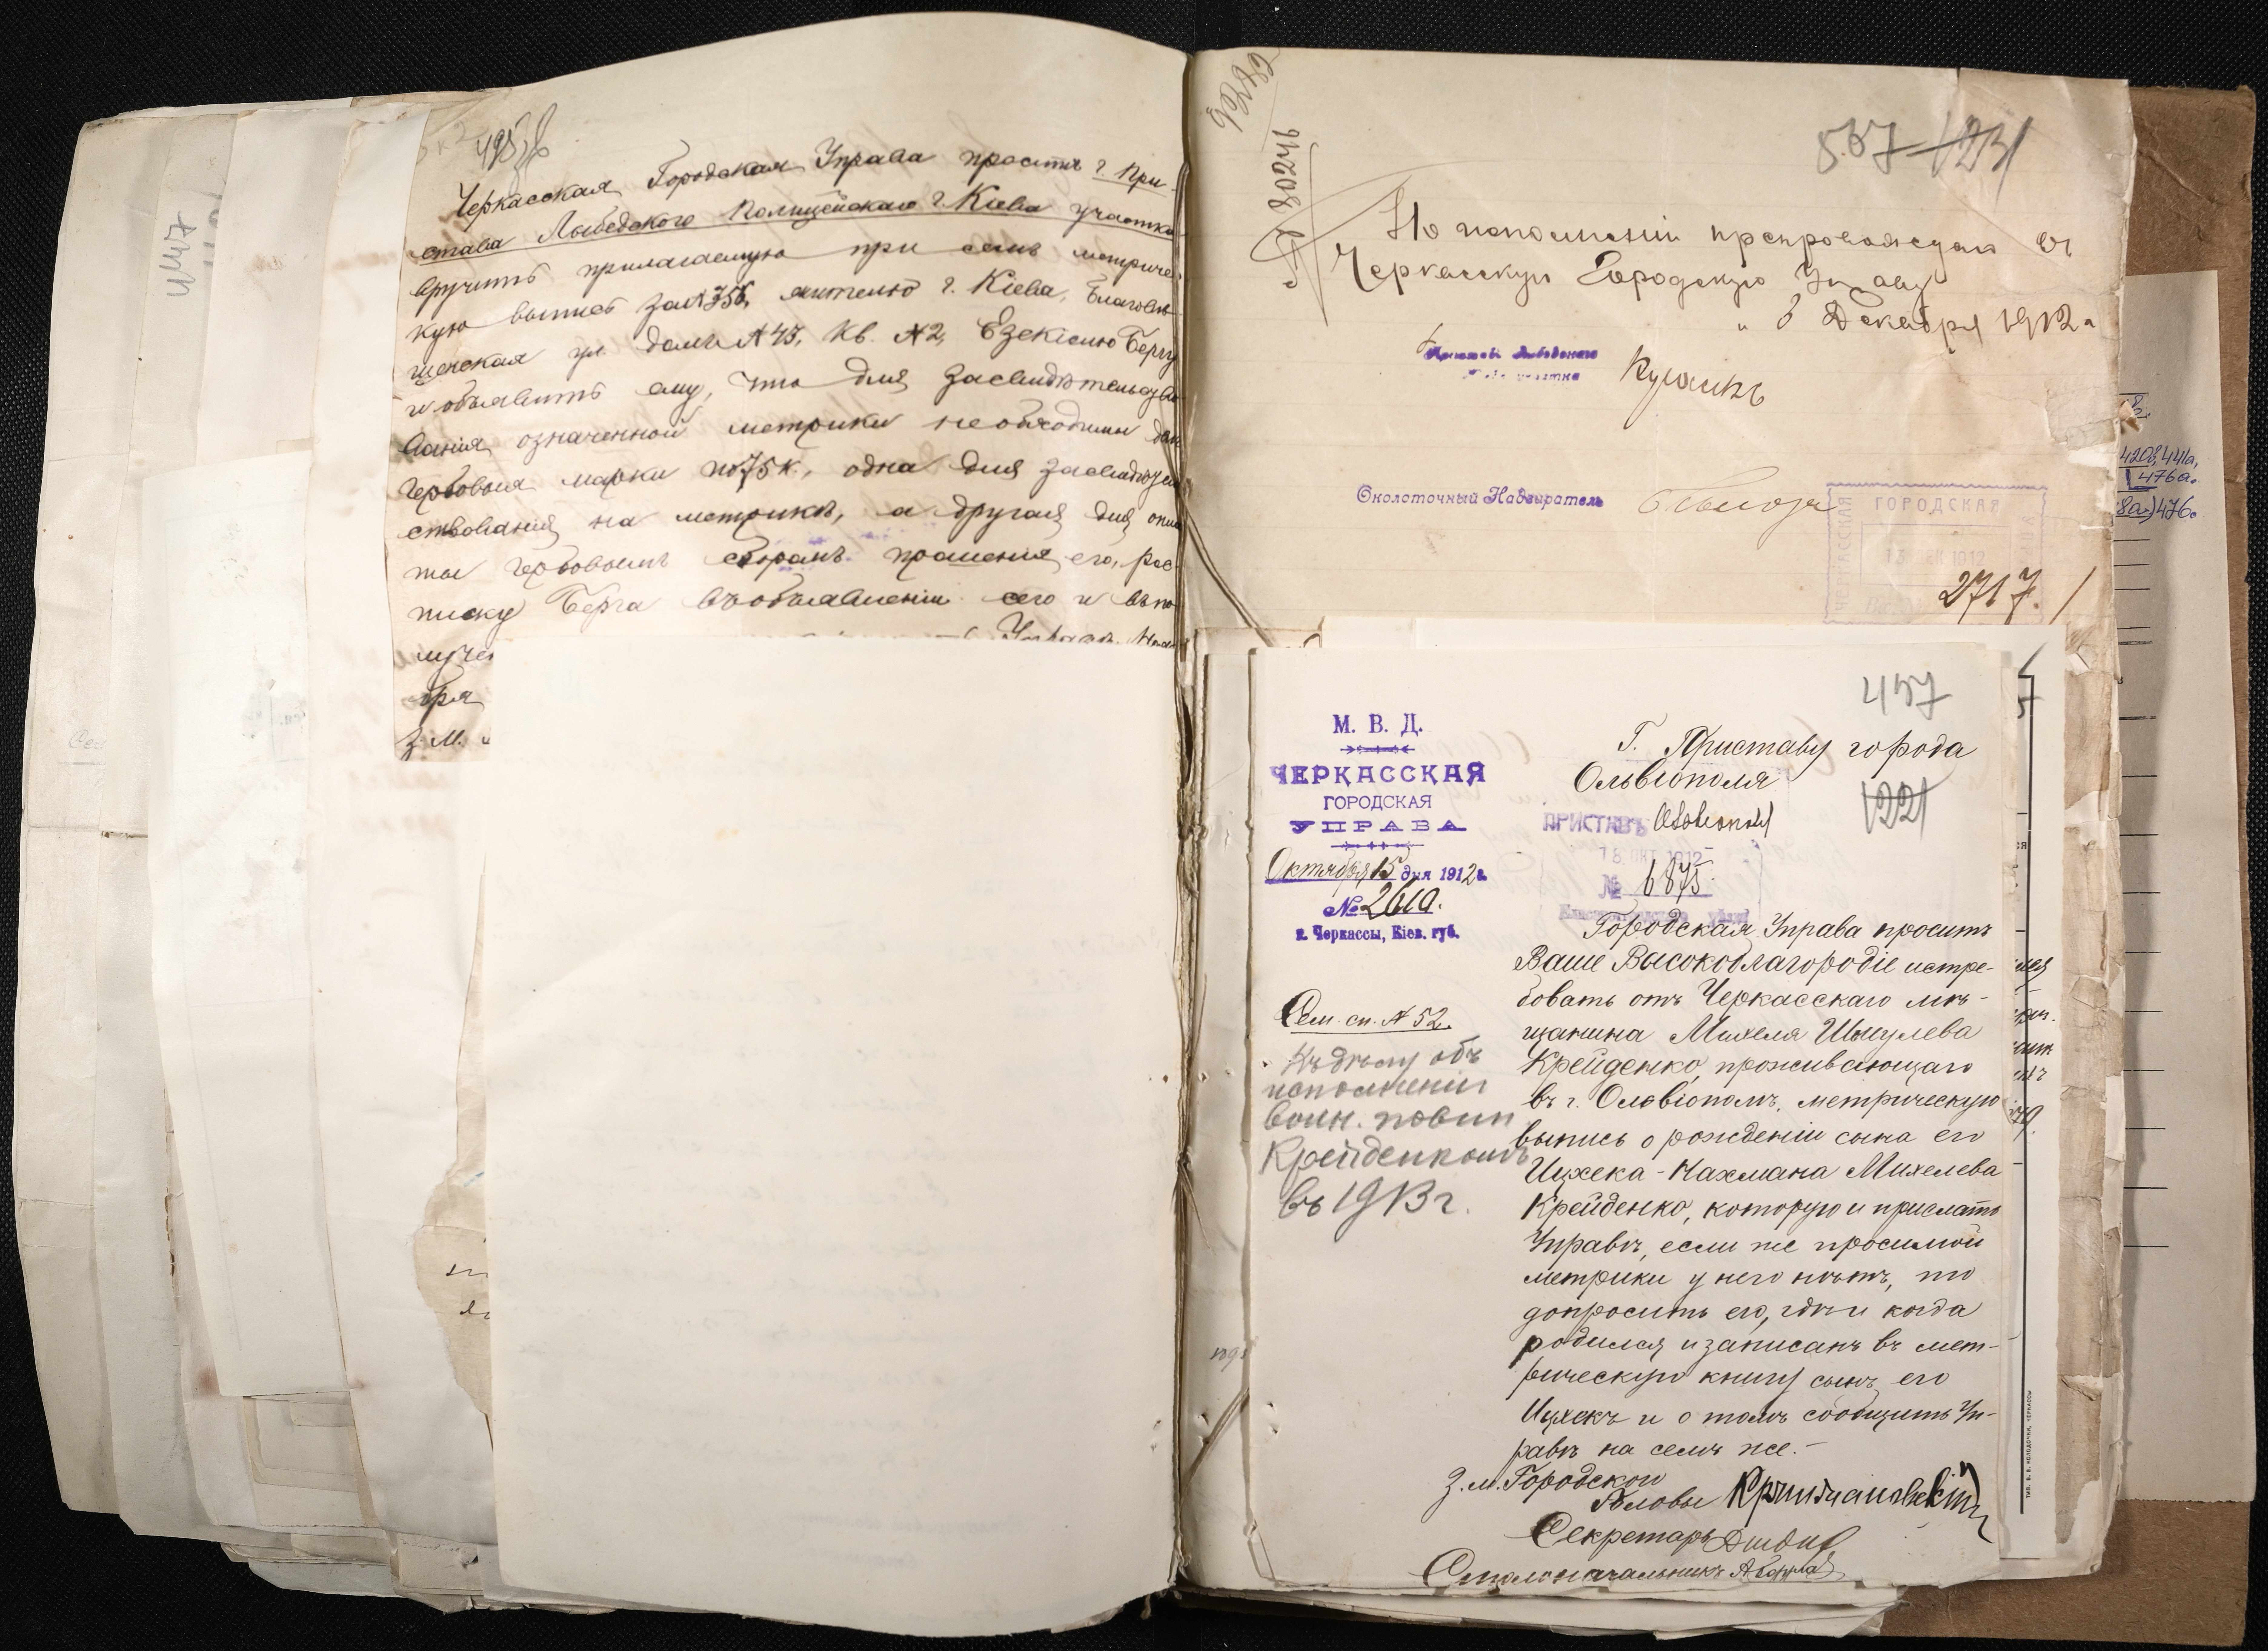 495
Черкасская Городская Управа проситъ г. При-
става Лыбедского Полицейскаго г. Кіева участка
вручить прилагаемую при семъ метричес-
кую выпись за № 756, жителю г. Кіева, Благовѣ-
щенская ул. домъ № 43, кв. № 2, Езекіелю Бергу
и объявить ему, что для засвидѣтельство-
ванія означенной метрики необходимы двѣ
гербовыя марки по 75 к., одна для засвидѣтель-
ствованія на метрикѣ, а другая для опла-
ты гербовымъ сборомъ прошенія его, рос-
писку Берга въ объявленіи сего и въ по-
луче
бря
З. М.
1447
92782
№ 80246
567
1231
По исполненіи препровождаю въ
Черкасскую Городскую Управу
" 6 Декабря 1912 г
Приставъ Лыбедского
участка
Околоточный Надзиратель
ЧЕРКАССКАЯ
ГОРОДСКАЯ
УПРАВА
13 ДЕК 1912
2717.
420&, 441а,
476а.
8а) 476с
457
М. В. Д.
ЧЕРКАССКАЯ
ГОРОДСКАЯ
УПРАВА
Октября 15 дня 1912 г.
№ 2610.
г. Черкассы, Кіев. губ.
Г. Приставу города
Ольвіополя
1221
ПРИСТАВЪ Ольвіополя
18 ОКТ 1912
№ 6875.
Елисаветградскаго уѣзда
Сем. сп. № 52.
Къ дѣлу объ
исполненіи
воин. повин
Крейденкомъ
въ 1913 г.
Городская Управа проситъ
Ваше Высокоблагородіе истре-
бовать отъ Черкасскаго мѣ-
щанина Михеля Шмулева
Крейденко, проживающаго
въ г. Ольвіополѣ, метрическую
выпись о рожденіи сына его
Ицхека-Нахмана Михелева
Крейденко, которую и прислать
Управѣ, если же просимой
метрики у него нѣтъ, то
допросить его, гдѣ и когда
родился и записанъ въ мет-
рическую книгу сынъ его
Ицхекъ и о томъ сообщить Уп-
равѣ на семъ же.-
З. м. Городского
Головы
Секретарь
Столоначальникъ
ТИП. В. В. КОЛОДОЧКИ, ЧЕРКАССЫ